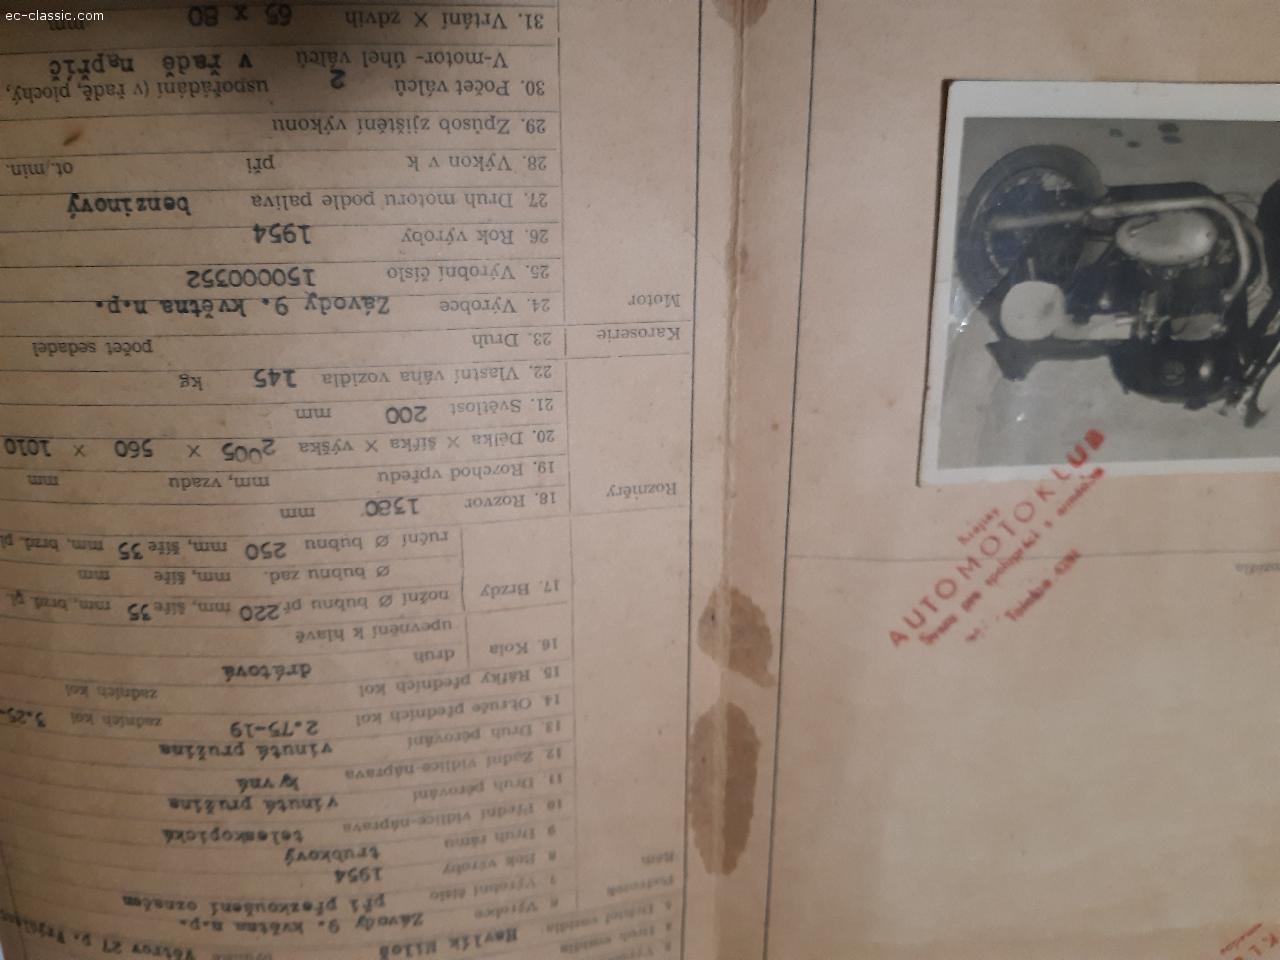 ec-classic.com
5. Držitel vozidla Havlík Miloš
6. Výrobce Závody 9. května n.p.
7. Výrobní číslo při přezkoušení označen
8. Rok výroby 1954
Podvozek
Rám
9. Druh rámu trubkový
10. Přední vidlice-náprava teleskopická
11. Druh pérování vinutá pružina
12. Zadní vidlice-náprava kyvná
13. Druh pérování vinutá pružina
14. Obruče předních kol 2.75-19 zadních kol 3.25-
15. Ráfky předních kol zadních kol
16. Kola druh drátová
upevnění k hlavě
17. Brzdy nožní Ø bubnu př 220 mm, šíře 35 mm, brzd. pl.
Ø bubnu zad. mm, šíře mm
ruční Ø bubnu 250 mm, šíře 35 mm, brzd. pl
Rozměry
18. Rozvor 1380 mm
19. Rozchod vpředu mm, vzadu mm
20. Délka × šířka × výška 2005 × 560 × 1010
21. Světlost 200 mm
22. Vlastní váha vozidla 145 kg
Karoserie
23. Druh počet sedadel
Motor
24. Výrobce Závody 9. května n.p.
25. Výrobní číslo 150000352
26. Rok výroby 1954
27. Druh motoru podle paliva benzinový
28. Výkon v k při ot./min.
29. Způsob zjištění výkonu
30. Počet válců 2 uspořádání (v řadě, plochý,
V-motor- úhel válců v řadě napříč
31. Vrtání × zdvih 65 x 80 mm
Krajský
AUTOMOTOKLUB
Svazu pro spolupráci s armádou